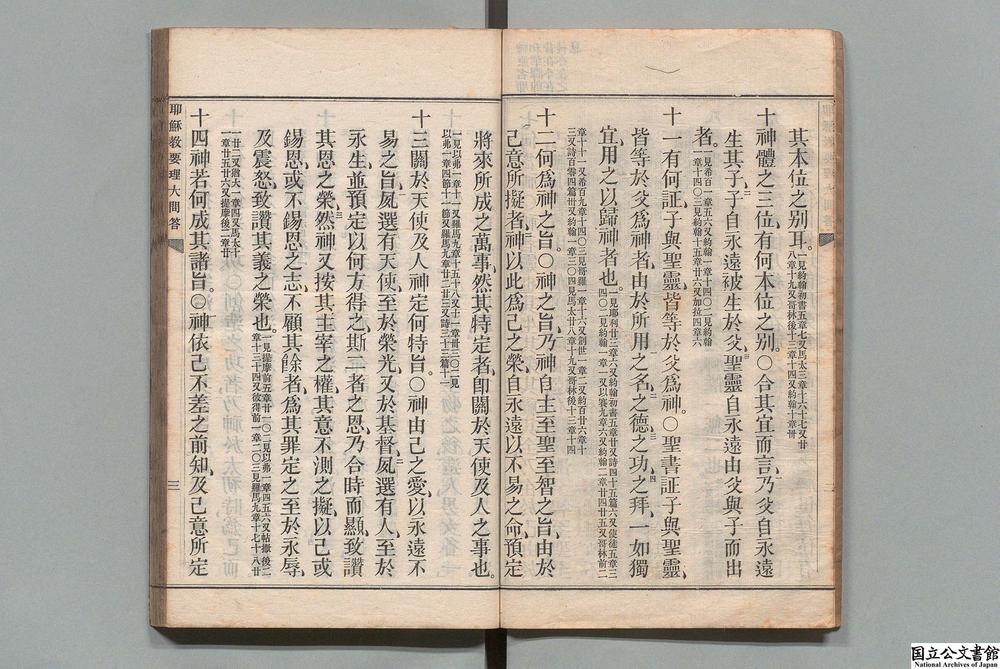 其本位之別耳。一見約翰初書五章七又馬太三章十六十七又廿八章十九又哥林後十三章十四又約翰十章卅
十神體之三位有何本位之別○合其宜而言乃父自永遠
生其子子自永遠被生於父聖靈自永遠由父與子而出
者。
十一有何証子與聖靈皆等於父爲神。○聖書証子與聖靈
皆等於父爲神者由於所用之名之德之功之拜一如獨
宜用之以歸神者也。
十二何爲神之旨。○神之旨乃神自主至聖至智之旨由於
己意所擬者神以此爲己之榮自永遠以不易之命預定
將來所成之萬事然其特定者卽關於天使及人之事也。
十三關於天使及人神定何特旨。○神由己之愛以永遠不
易之旨夙選有天使至於榮光又於基督夙選有人至於
永生並預定以何方得之斯二者之恩乃合時而顯致讚
其恩之榮然神又按其主宰之權其意不測之擬以己或
錫恩或不錫恩之志不顧其餘者爲其罪定之至於永辱
及震怒致讚其義之榮也。
十四神若何成其諸旨。○神依己不差之前知及己意所定
耶穌教要理大問答
三
耶穌教要理大問答
国立公文書館
National Archives of Japan